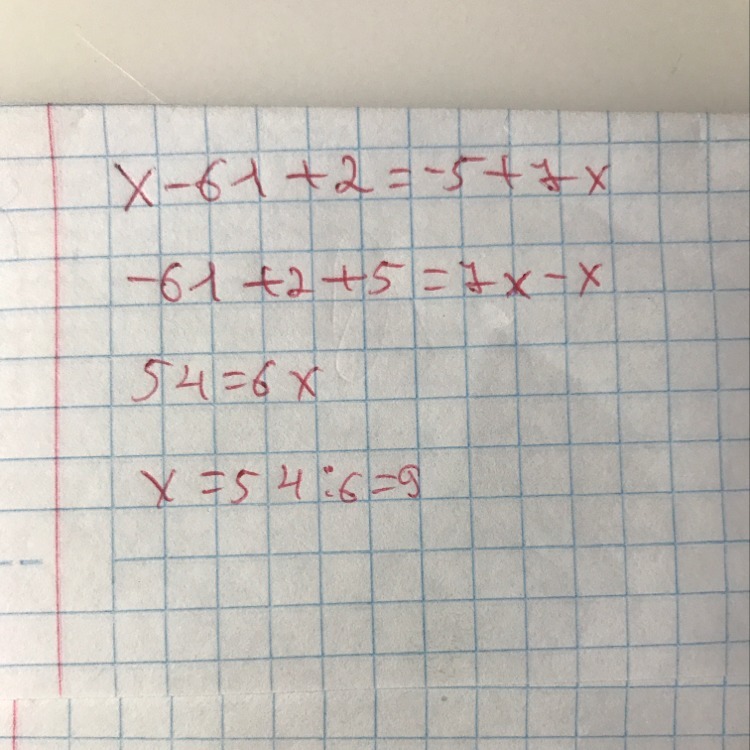 x-61+2=-5+7x
-61+2+5=7x-x
54=6x
x=54:6=9